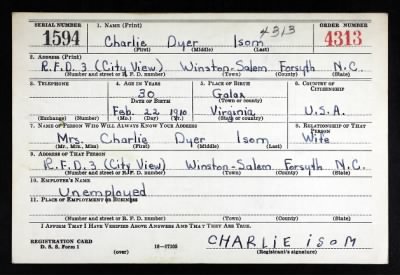 SERIAL NUMBER 1. NAME (Print) ORDER NUMBER
1594 Charlie Dyer Isom 4313 4313
(First) (Middle) (Last)
2. ADDRESS (Print)
R.F.D. 3 (City View) Winston-Salem Forsyth N.C.
(Number and street or R. F. D. number) (Town) (County) (State)
3. TELEPHONE 4. AGE IN YEARS 5. PLACE OF BIRTH 6. COUNTRY OF CITIZENSHIP
30 Galax
DATE OF BIRTH (Town or county)
Feb. 22 1910 Virginia U.S.A.
(Exchange) (Number) (Mo.) (Day) (Yr.) (State or country)
7. NAME OF PERSON WHO WILL ALWAYS KNOW YOUR ADDRESS 8. RELATIONSHIP OF THAT PERSON
Mrs. Charlie Dyer Isom Wife
(Mr., Mrs., Miss) (First) (Middle) (Last)
9. ADDRESS OF THAT PERSON
R.F.D. 3 (City View) Winston-Salem Forsyth N.C.
(Number and street or R. F. D. number) (Town) (County) (State)
10. EMPLOYER'S NAME
Unemployed
11. PLACE OF EMPLOYMENT OR BUSINESS
(Number and street or R. F. D. number) (Town) (County) (State)
I AFFIRM THAT I HAVE VERIFIED ABOVE ANSWERS AND THAT THEY ARE TRUE.
REGISTRATION CARD
D. S. S. Form 1 16-17105 CHARLIE ISOM
(over) (Registrant's signature)